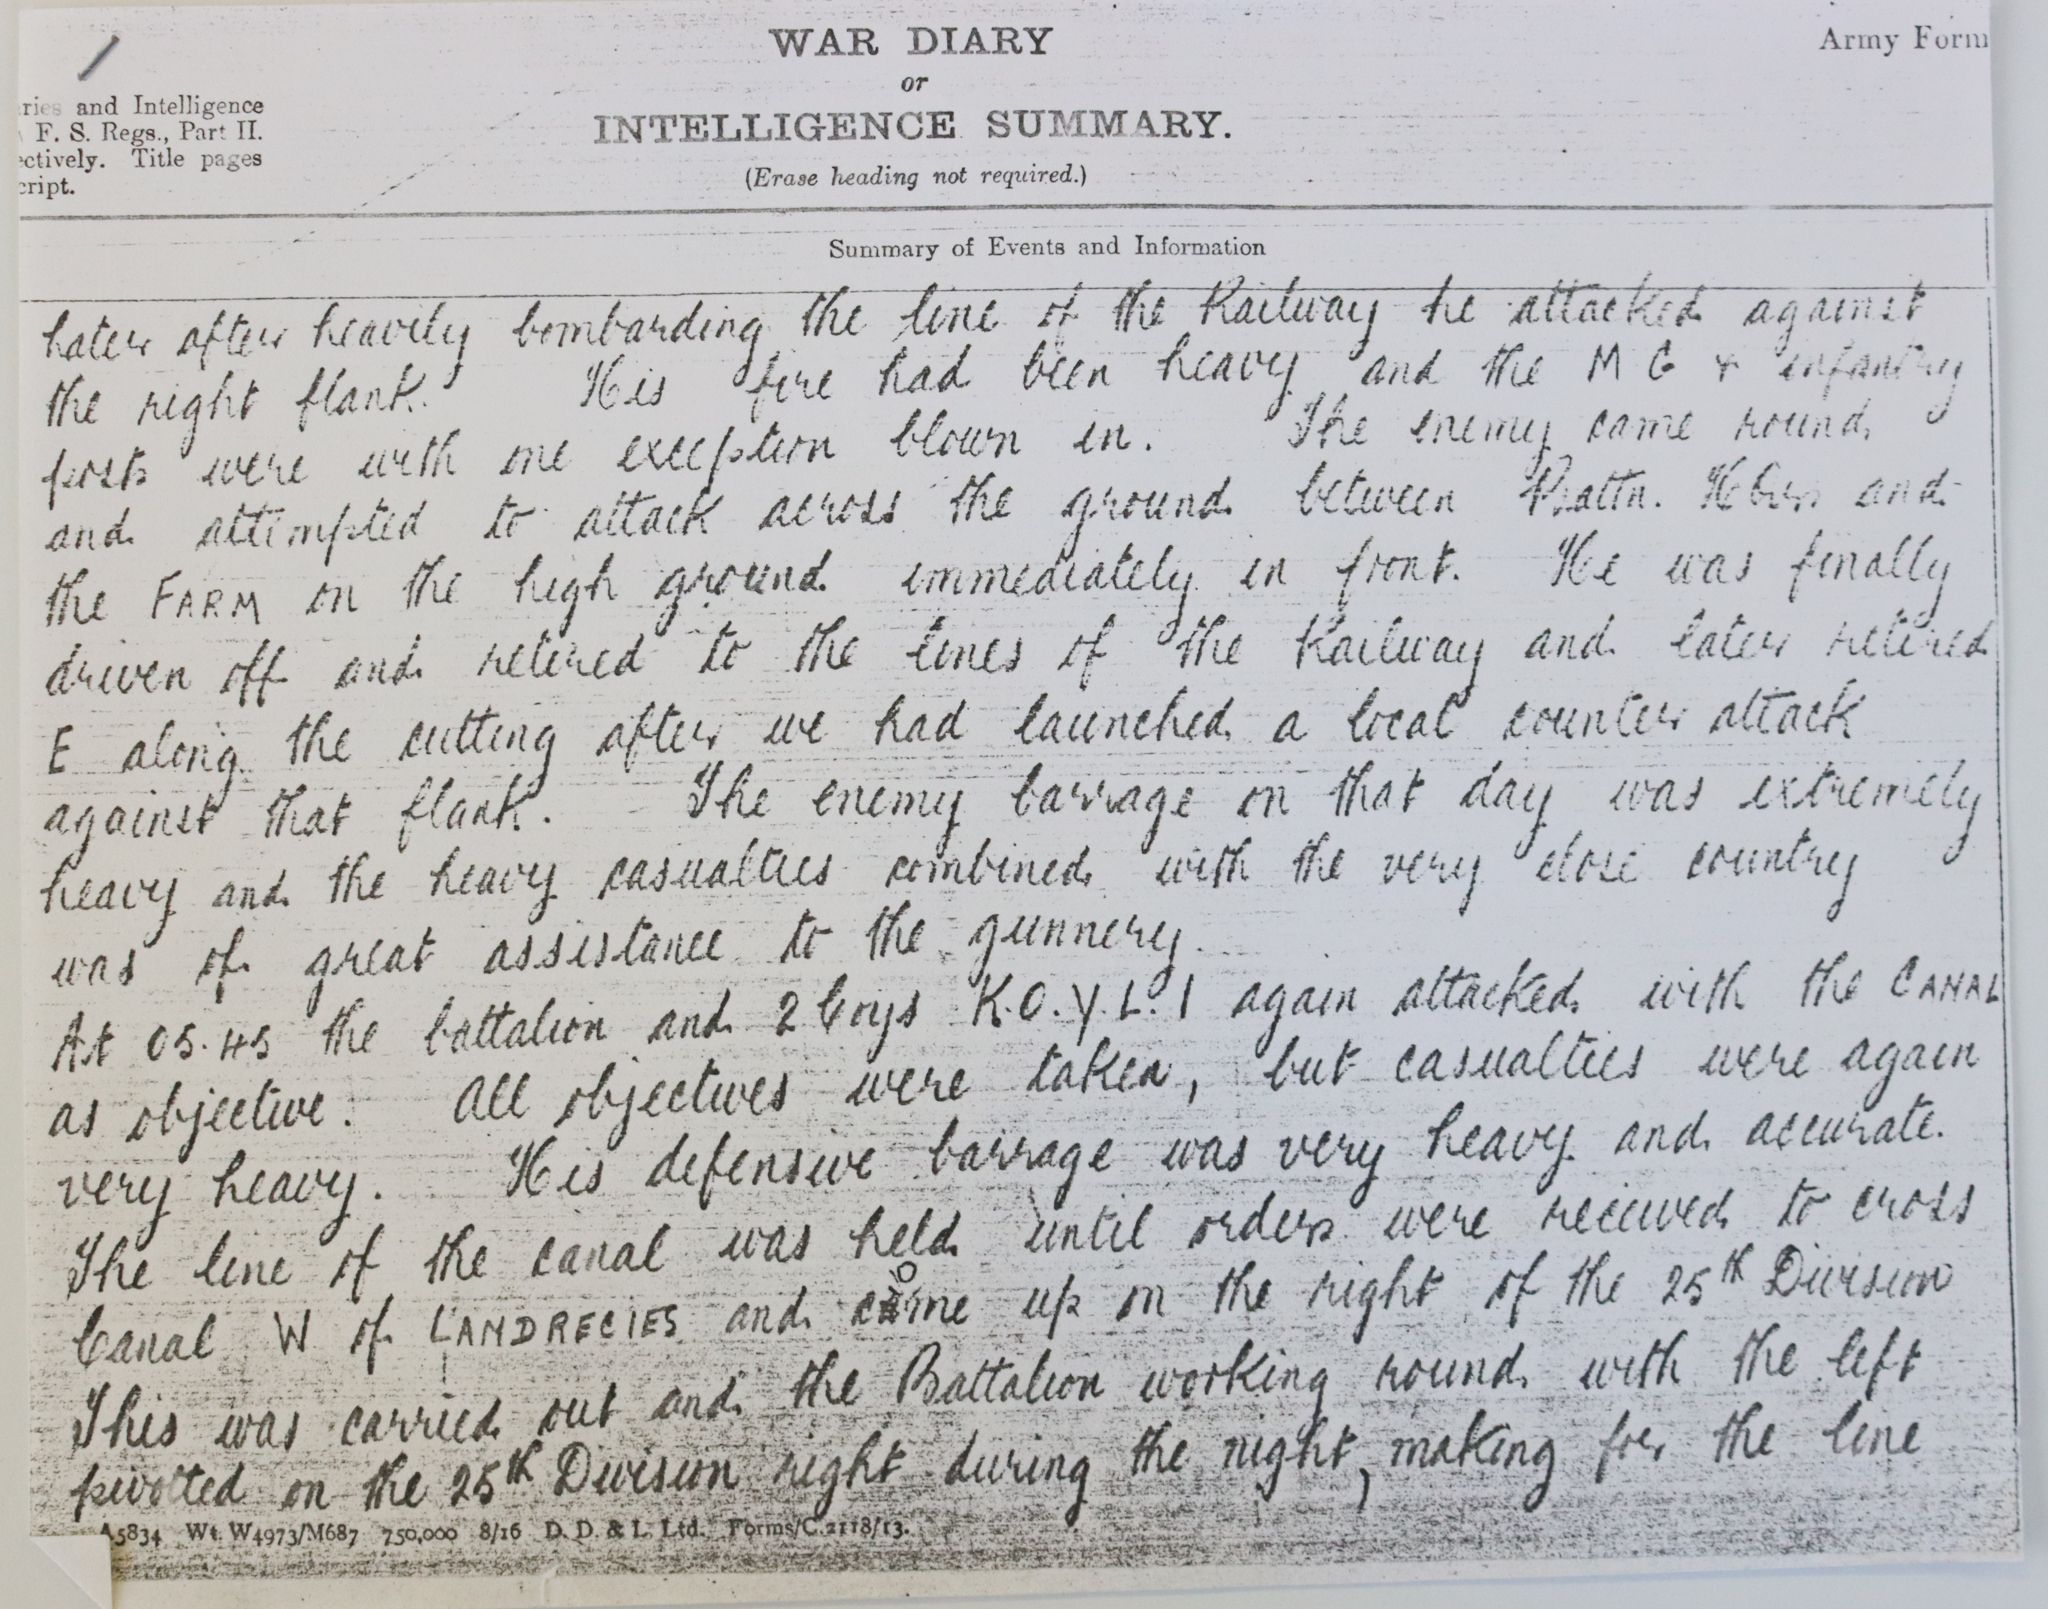 WAR DIARY
Army Form
or
INTELLIGENCE SUMMARY.
(Erase heading not required.)
ries and Intelligence
F. S. Regs., Part II.
ectively. Title pages
cript.
Summary of Events and Information
Later after heavily bombarding the line of the Railway he attacked against
the right flank. His fire had been heavy and the M G & infantry
posts were with one exception blown in. The enemy came round
and attempted to attack across the ground between Battn. Hdqrs and
the FARM on the high ground immediately in front. He was finally
driven off and retired to the lines of the Railway and later retired
E along the cutting after we had launched a local counter attack
against that flank. The enemy barrage on that day was extremely
heavy and the heavy casualties combined with the very close country
was of great assistance to the gunnery.
At 05.45 the battalion and 2 Coys K.O.Y.L.I again attacked with the CANAL
as objective. All objectives were taken, but casualties were again
very heavy. His defensive barrage was very heavy and accurate.
The line of the canal was held until orders were received to cross
Canal W of LANDRECIES and come up on the right of the 25th Division
This was carried out and the Battalion working round with the left
pivotted on the 25th Division right during the night, making for the line
A5834 Wt. W4973/M687 750,000 8/16 D. D. & L. Ltd. Forms/C.2118/13.